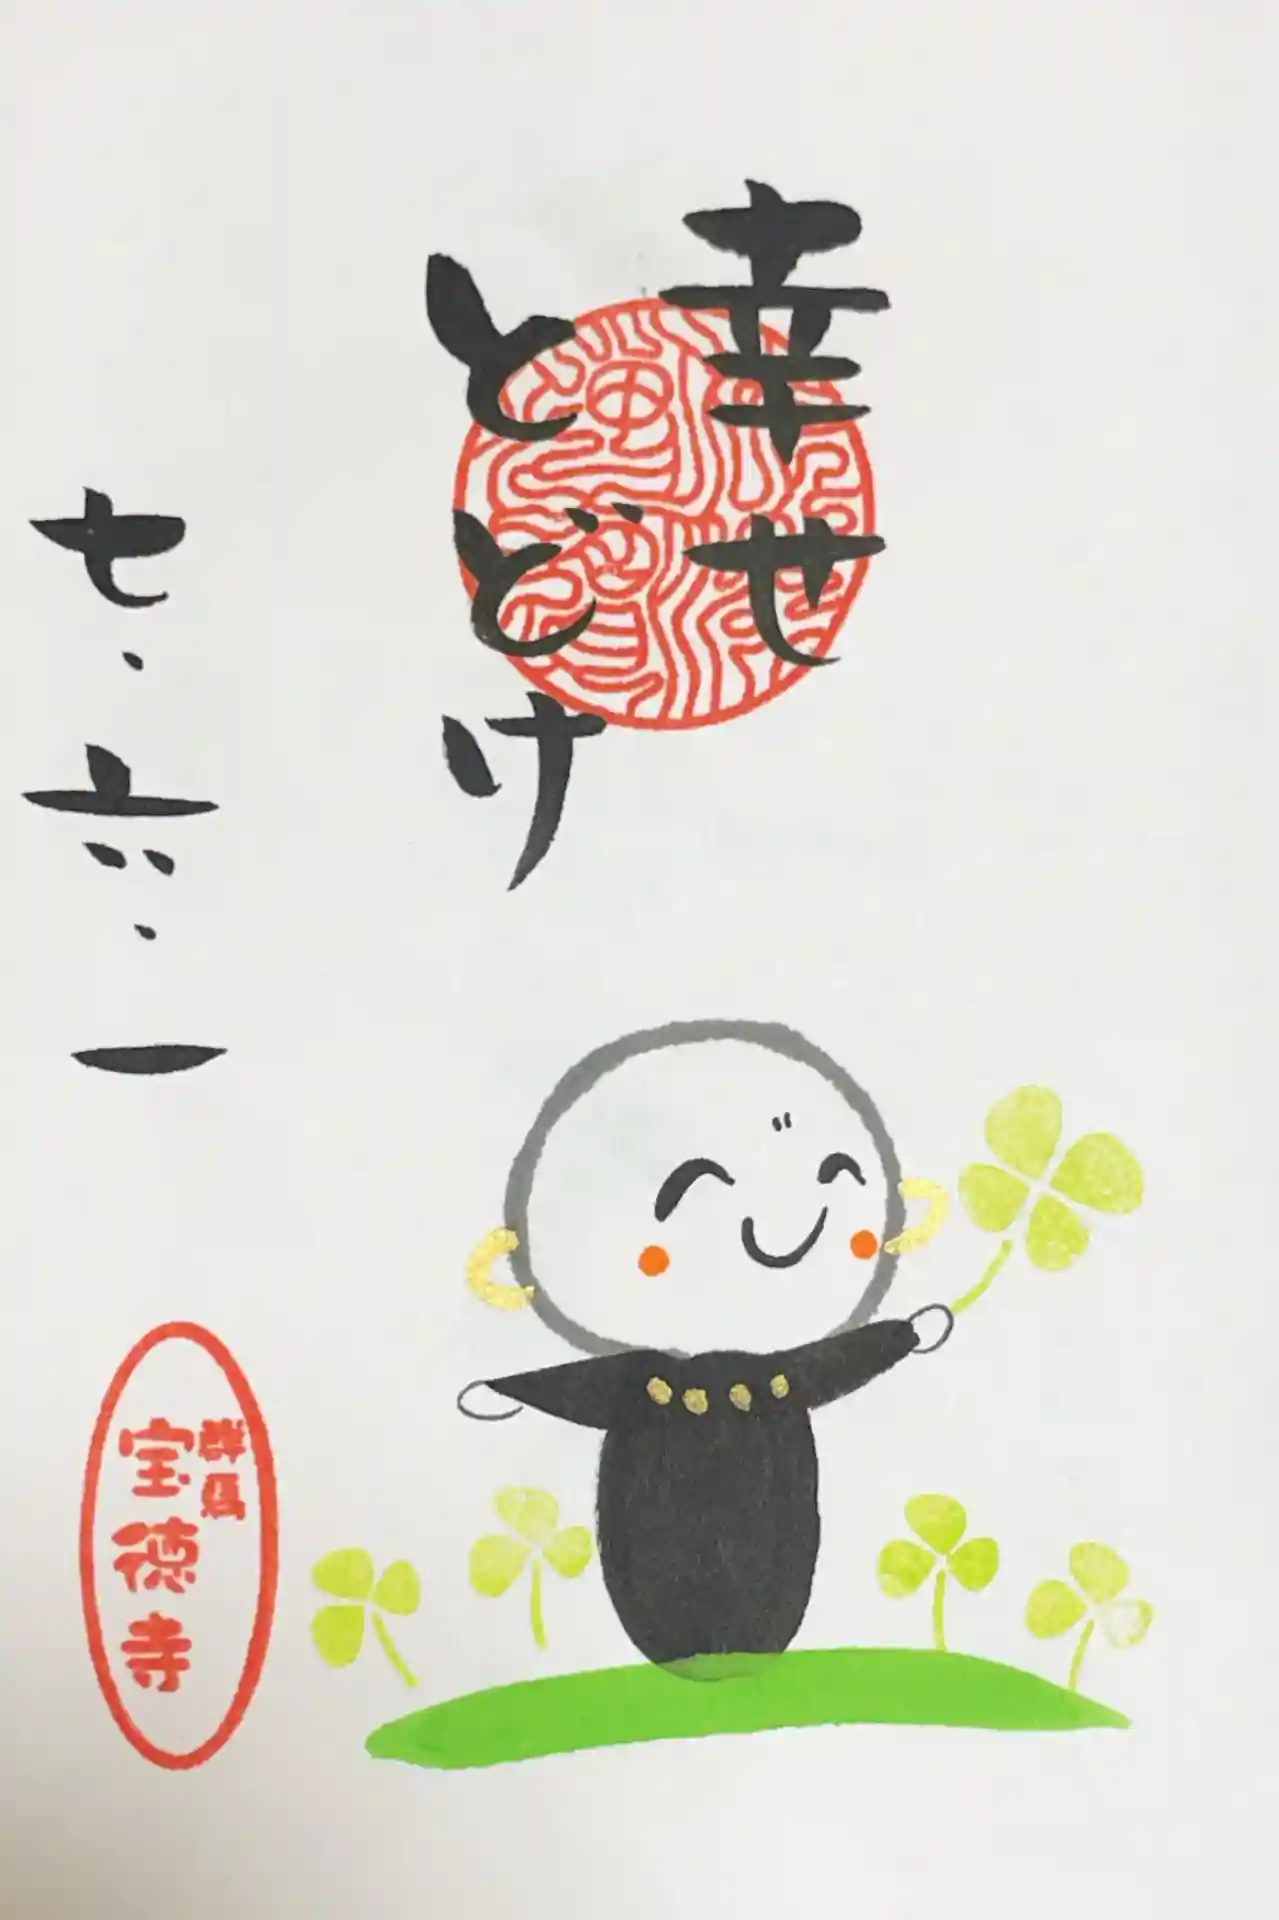 幸せ
とどけ
七・六・一
群馬
宝徳寺